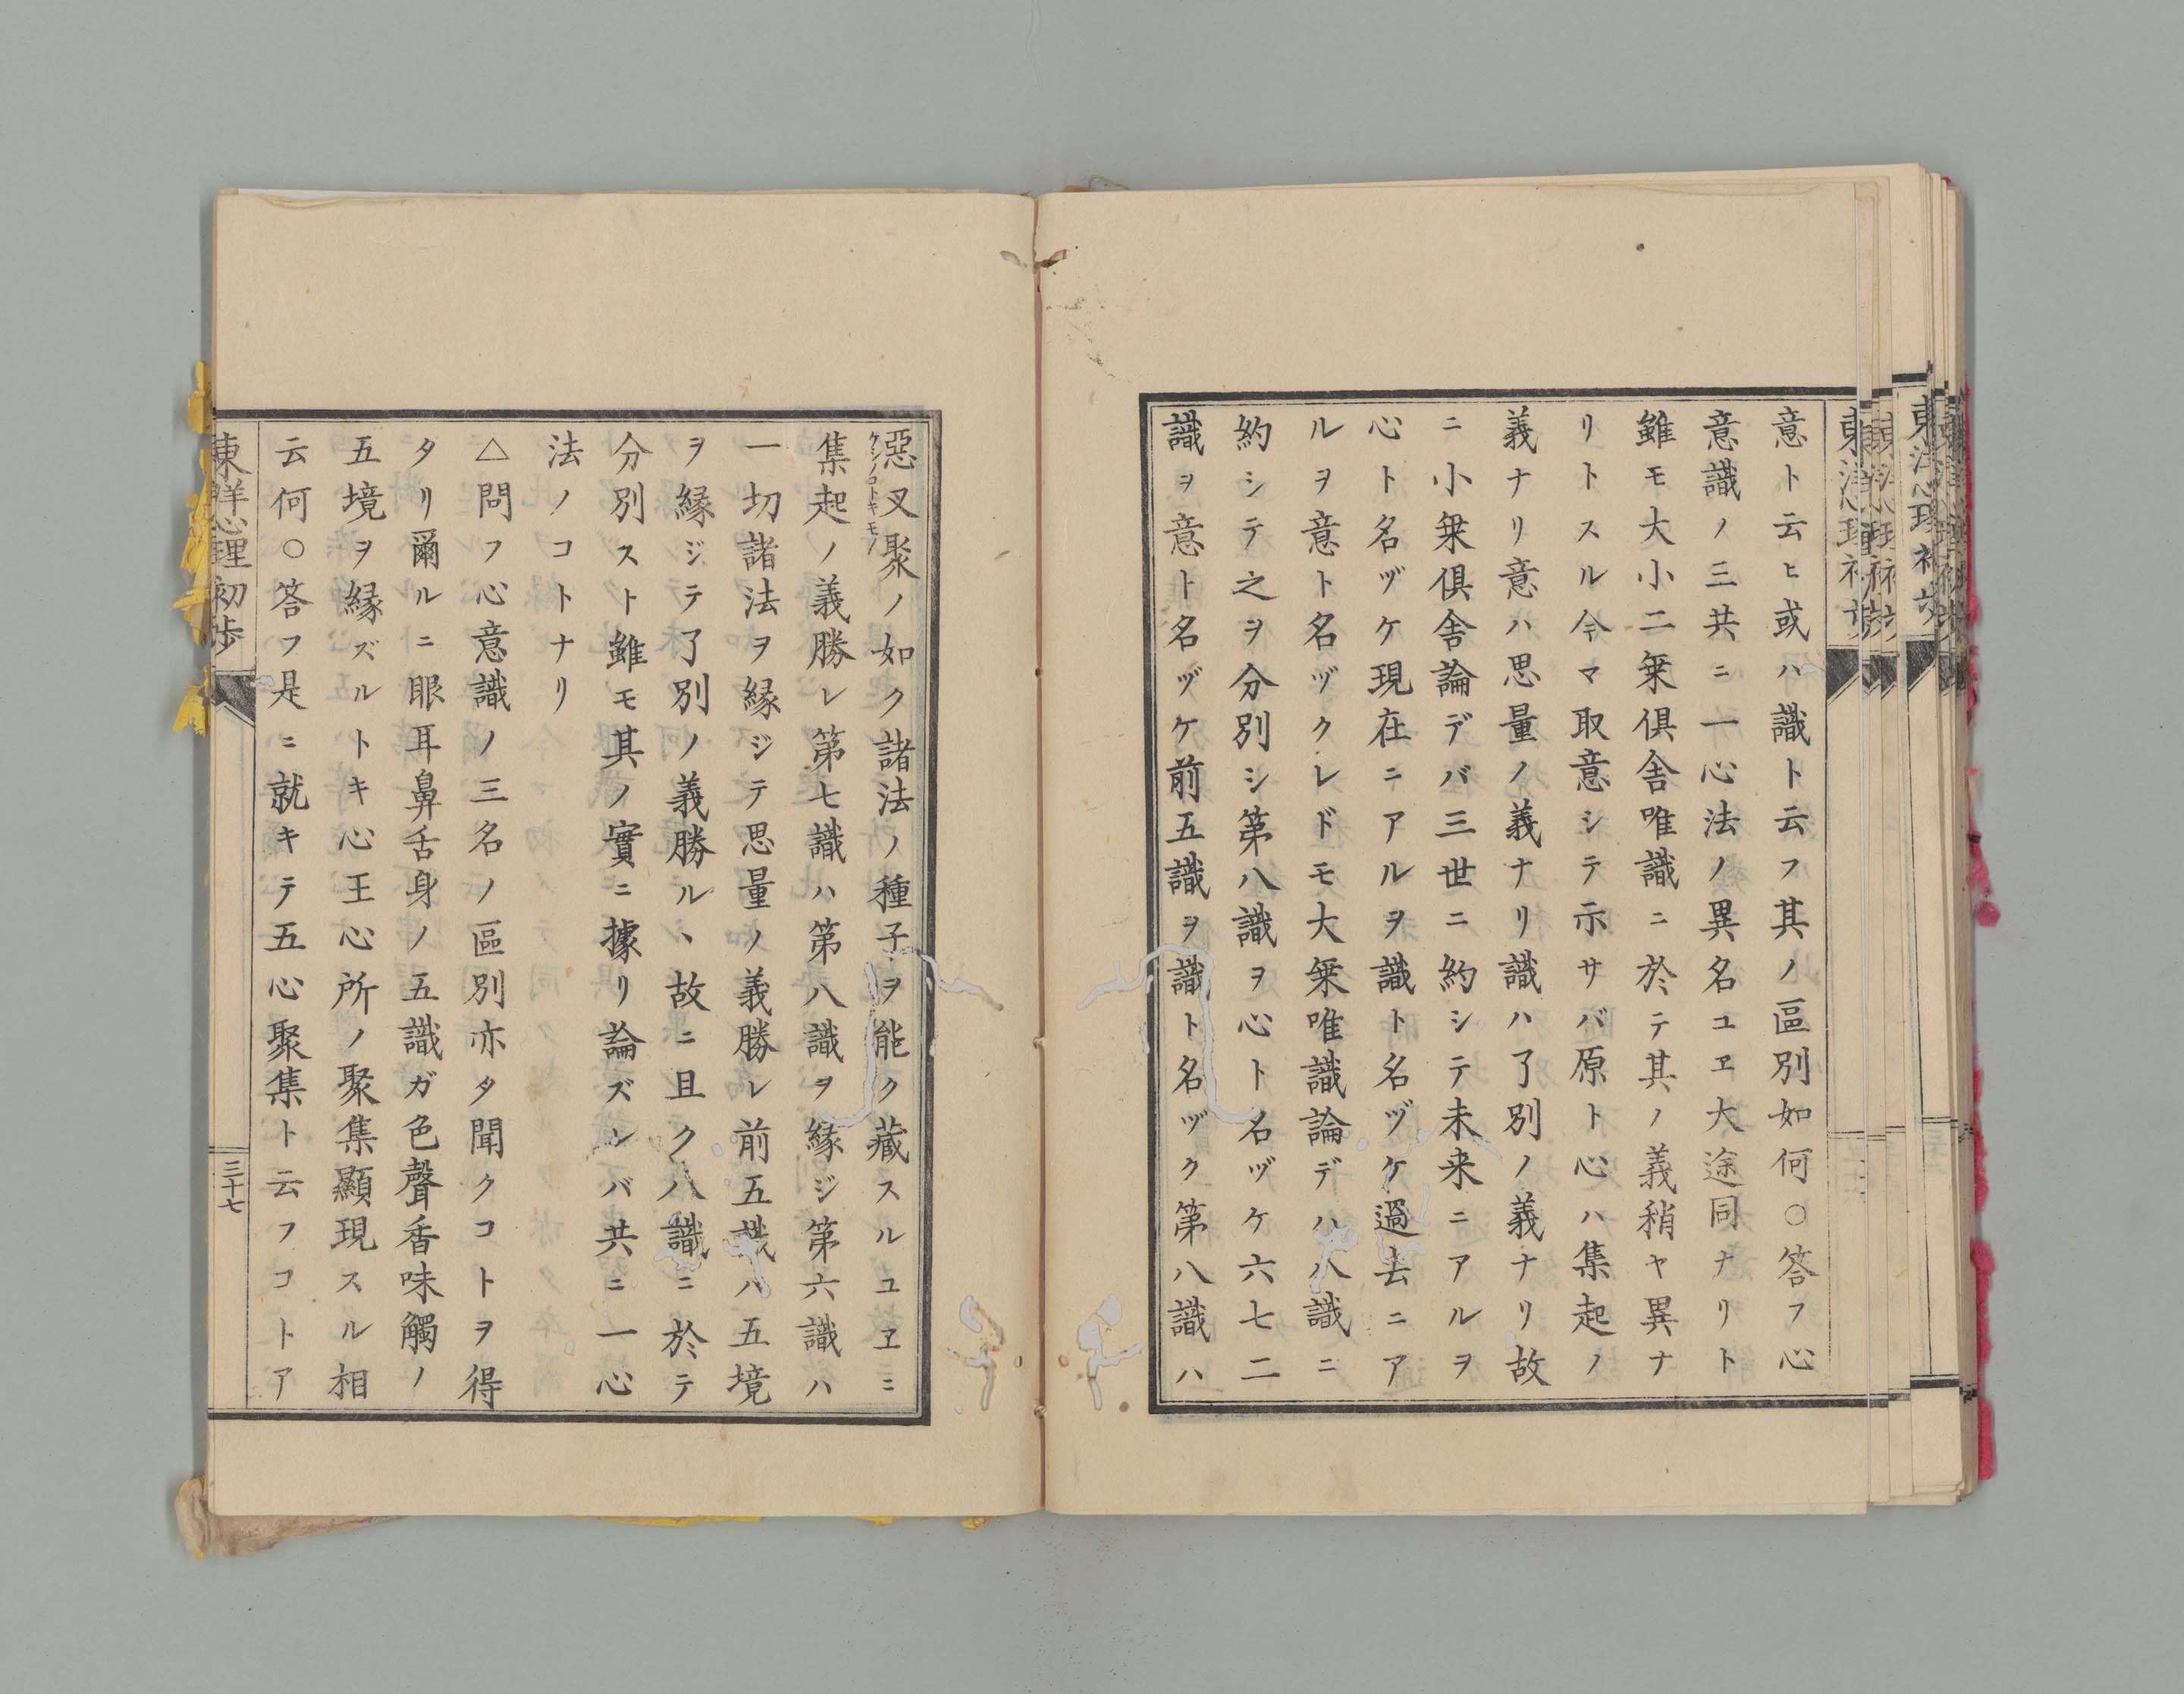 意ト云ヒ或ハ識ト云フ其ノ區別如何○答フ心
意識ノ三共ニ一心法ノ異名ユヱ大途同ナリト
雖モ大小二乗俱舎唯識ニ於テ其ノ義稍ヤ異ナ
リトスル今マ取意シテ示サバ原ト心ハ集起ノ
義ナリ意ハ思量ノ義ナリ識ハ了別ノ義ナリ故
ニ小乗俱舎論デバ三世ニ約シテ未来ニアルヲ
心ト名ヅケ現在ニアルヲ識ト名ヅケ過去ニア
ルヲ意ト名ヅクレドモ大乗唯識論デハ八識ニ
約シテ之ヲ分別シ第八識ヲ心ト名ヅケ六七二
識ヲ意ト名ヅケ前五識ヲ識ト名ヅク第八識ハ
惡叉聚ノ如ク諸法ノ種子ヲ能ク藏スルユヱニ
ケシノコトキモノ
集起ノ義勝レ第七識ハ第八識ヲ縁ジ第六識ハ
一切諸法ヲ縁ジテ思量ノ義勝レ前五識ハ五境
ヲ縁ジテ了別ノ義勝ルヽ故ニ且ク八識ニ於テ
分別スト雖モ其ノ實ニ據リ論ズレバ共ニ一心
法ノコトナリ
△問フ心意識ノ三名ノ區別亦タ聞クコトヲ得
タリ爾ルニ眼耳鼻舌身ノ五識ガ色聲香味觸ノ
五境ヲ縁ズルトキ心王心所ノ聚集顯現スル相
云何○答フ是ニ就キテ五心聚集ト云フコトア
東洋心理初歩
三十七